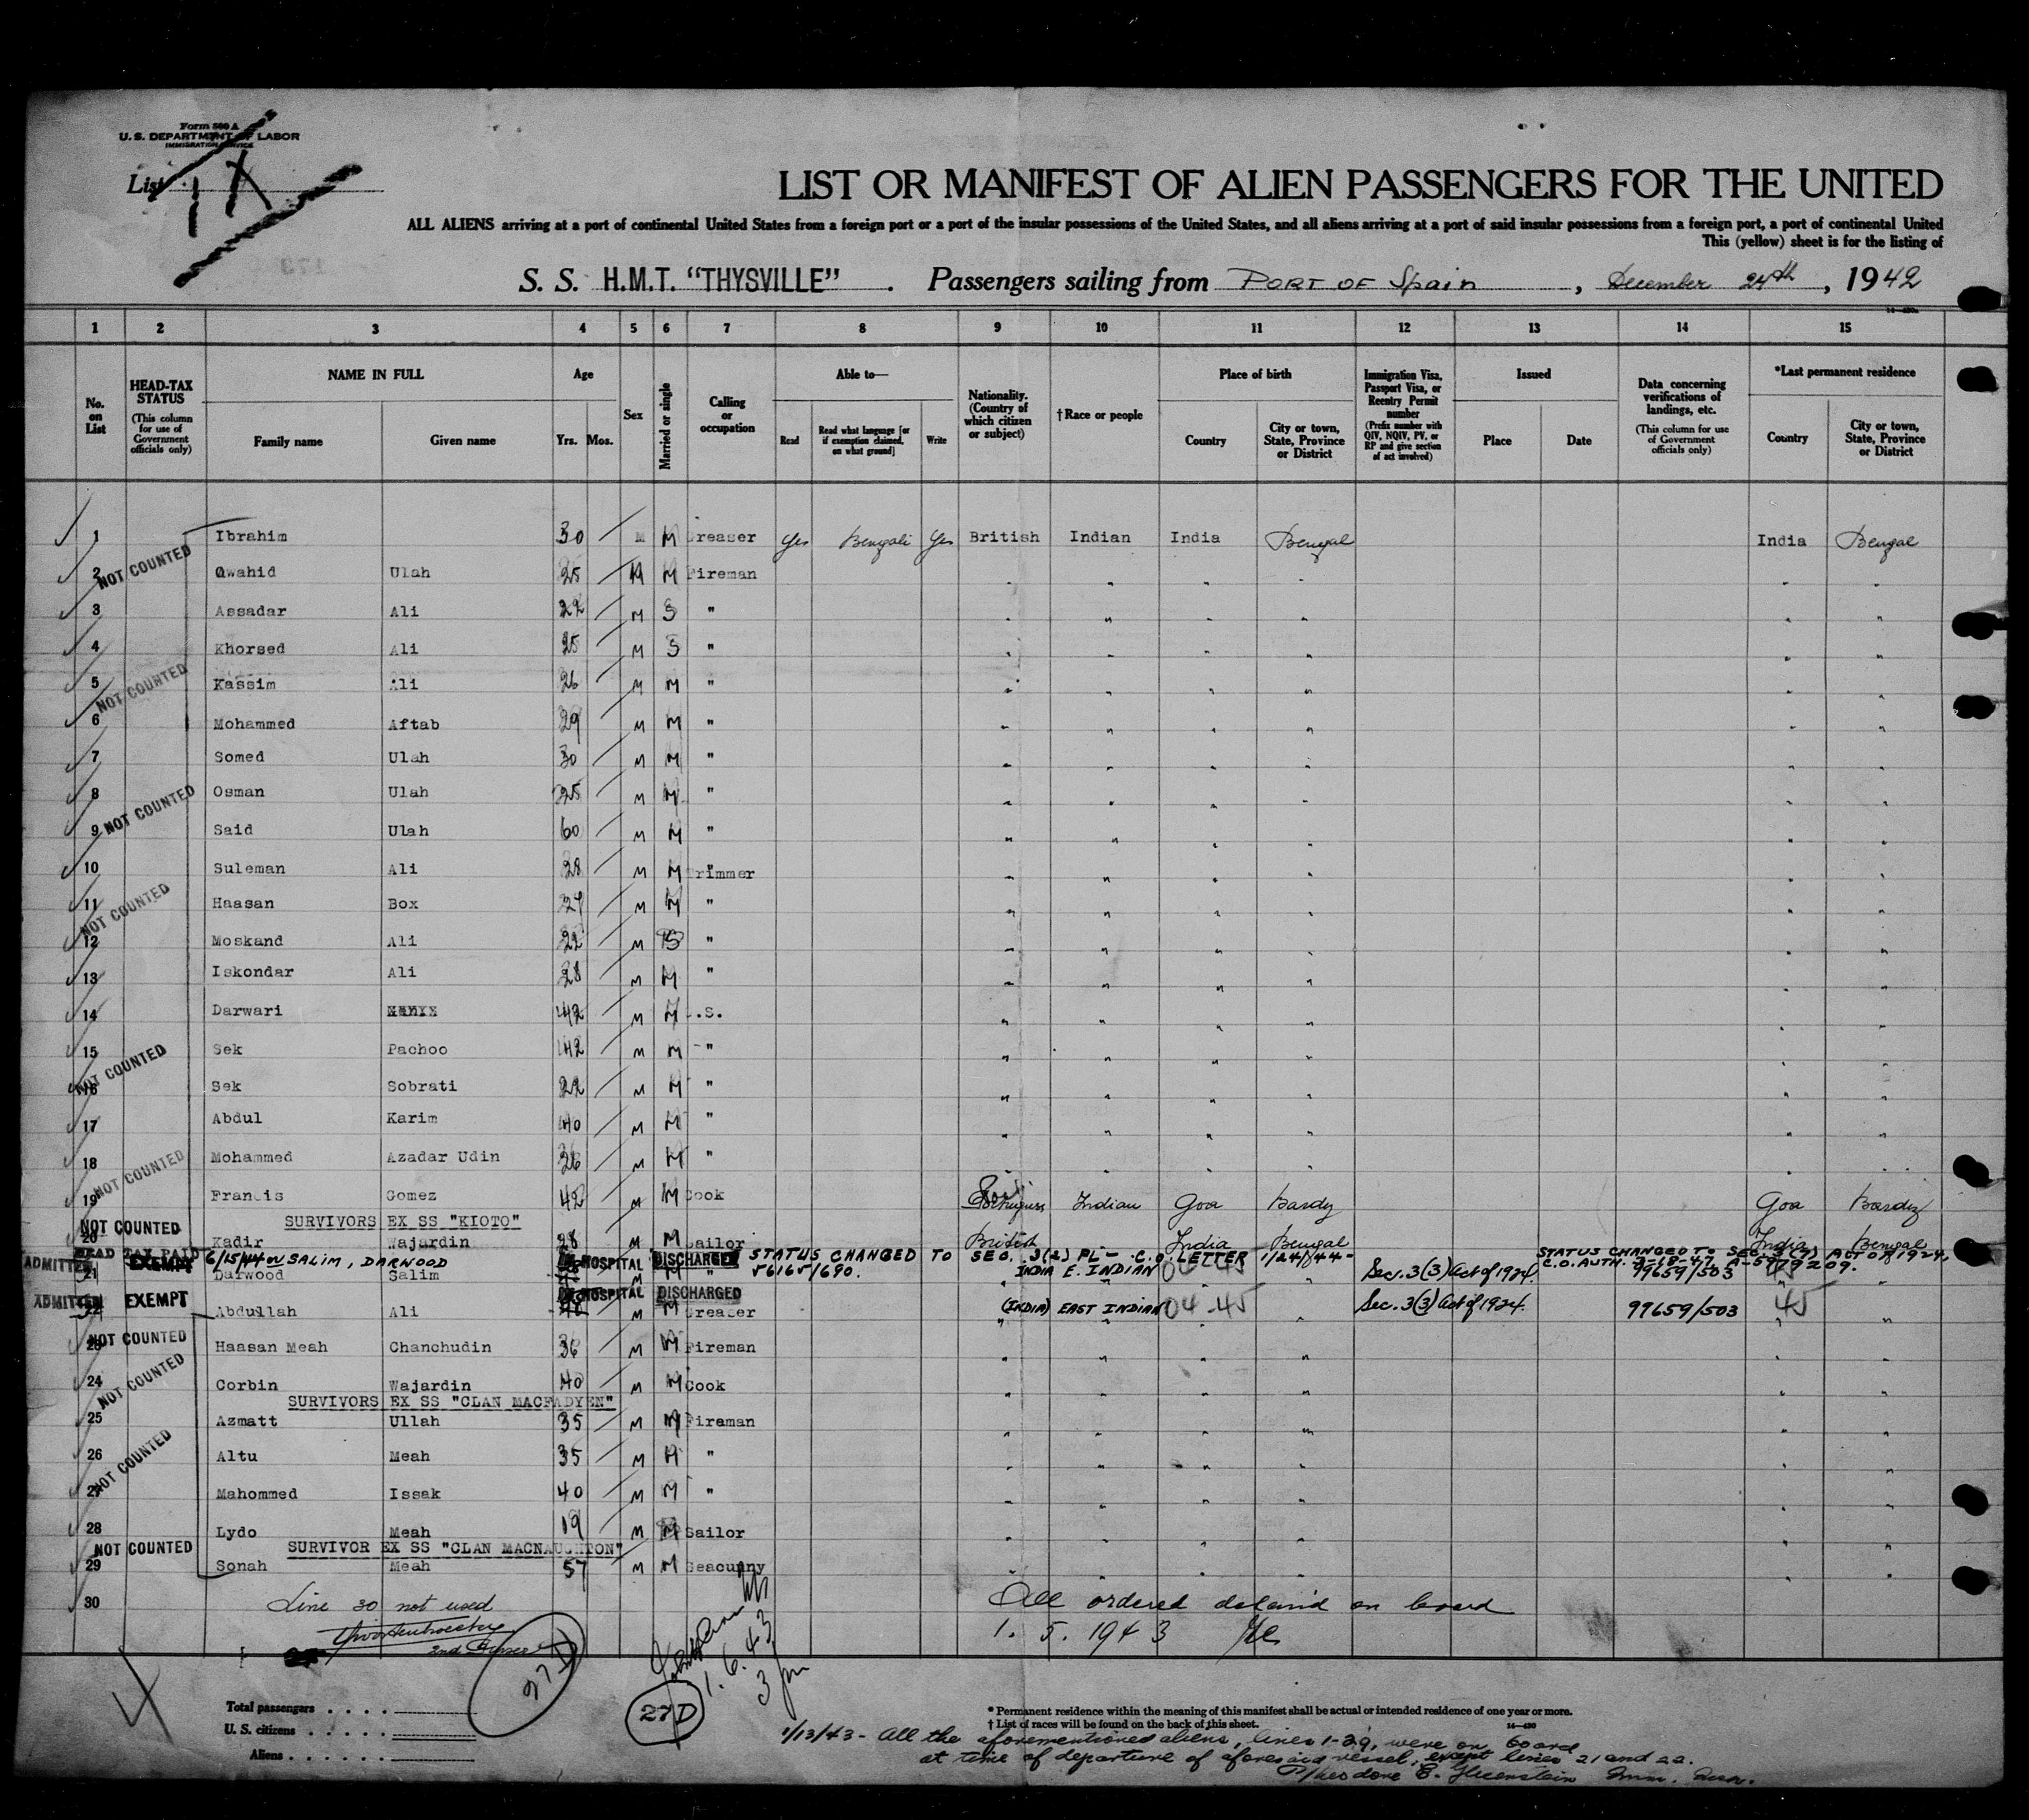 Form 500 A
U. S. DEPARTMENT OF LABOR
IMMIGRATION SERVICE
List 1X
LIST OR MANIFEST OF ALIEN PASSENGERS FOR THE UNITED
ALL ALIENS arriving at a port of continental United States from a foreign port or a port of the insular possessions of the United States, and all aliens arriving at a port of said insular possessions from a foreign port, a port of continental United
This (yellow) sheet is for the listing of
S. S. H.M.T. "THYSVILLE" . Passengers sailing from PORT OF Spain , December 24th , 1942
1 2 3 4 5 6 7 8 9 10 11 12 13 14 15
No. on List
HEAD-TAX STATUS (This column for use of Government officials only)
NAME IN FULL Family name Given name
Age Yrs. Mos.
Sex
Married or single
Calling or occupation
Able to— Read Read what language [or if exemption claimed, on what ground] Write
Nationality. (Country of which citizen or subject)
†Race or people
Place of birth Country City or town, State, Province or District
Immigration Visa, Passport Visa, or Reentry Permit number (Prefix number with QIV, NQIV, PV, or RP and give section of act involved)
Issued Place Date
Data concerning verifications of landings, etc. (This column for use of Government officials only)
*Last permanent residence Country City or town, State, Province or District
1 Ibrahim 30 M M Greaser Yes Bengali Yes British Indian India Bengal India Bengal
NOT COUNTED
2 Qwahid Ulah 25 M M Fireman " " " " " "
3 Assadar Ali 22 M S " " " " " " "
4 Khorsed Ali 25 M S " " " " " " "
NOT COUNTED
5 Kassim Ali 26 M M " " " " " " "
6 Mohammed Aftab 29 M M " " " " " " "
7 Somed Ulah 30 M M " " " " " " "
8 Osman Ulah 25 M M " " " " " " "
NOT COUNTED
9 Said Ulah 60 M M " " " " " " "
10 Suleman Ali 28 M M Trimmer " " " " " "
NOT COUNTED
11 Haasan Box 27 M M " " " " " " "
12 Moskand Ali 22 M S " " " " " " "
13 Iskondar Ali 28 M M " " " " " " "
14 Darwari 42 M M .S. " " " " " "
15 Sek Pachoo 42 M M " " " " " " "
NOT COUNTED
16 Sek Sobrati 22 M M " " " " " " "
17 Abdul Karim 40 M M " " " " " " "
18 Mohammed Azadar Udin 26 M M " " " " " " "
NOT COUNTED
19 Francis Gomez 42 M M Cook Portuguese Indian Goa Bardez Goa Bardez
SURVIVORS EX SS "KIOTO"
NOT COUNTED
20 Kadir Wajardin 28 M M Sailor British India Bengal India Bengal
HEAD TAX PAID 6/15/44 SALIM, DARWOOD
STATUS CHANGED TO SEC. 3(2) PL- C.O. LETTER 1/24/44-
56165/690.
STATUS CHANGED TO SEC. 3(3) ACT OF 1924,
C.O. AUTH. 3-18-47, A-5979209.
ADMITTED EXEMPT 21 Darwood Salim HOSPITAL DISCHARGED M M " INDIA E. INDIAN 04-45 Sec. 3(3) Act of 1924. 99659/503 45
ADMITTED EXEMPT 22 Abdullah Ali HOSPITAL DISCHARGED M M Greaser (INDIA) EAST INDIAN 04-45 Sec. 3(3) Act of 1924. 99659/503 45
NOT COUNTED
23 Haasan Meah Chanchudin 36 M M Fireman " " " " " "
24 Corbin Wajardin 40 M M Cook " " " " " "
NOT COUNTED
SURVIVORS EX SS "CLAN MACFADYEN"
25 Azmatt Ullah 35 M M Fireman " " " " " "
26 Altu Meah 35 M M " " " " " " "
NOT COUNTED
27 Mahommed Issak 40 M M " " " " " " "
28 Lydo Meah 19 M M Sailor " " " " " "
NOT COUNTED
SURVIVOR EX SS "CLAN MACNAUGHTON"
29 Sonah Meah 57 M M Seacunny " " " " " "
30 Line 30 not used
2nd Purser
All ordered detained on board
1. 5. 1943
27D
27D
1.6.43
3 pm
Total passengers . . . .
U. S. citizens . . . . .
Aliens . . . . . .
* Permanent residence within the meaning of this manifest shall be actual or intended residence of one year or more.
† List of races will be found on the back of this sheet.
1/13/43 - All the aforementioned aliens, lines 1-29, were on board
at time of departure of aforesaid vessel, except lines 21 and 22.
Theodore E.